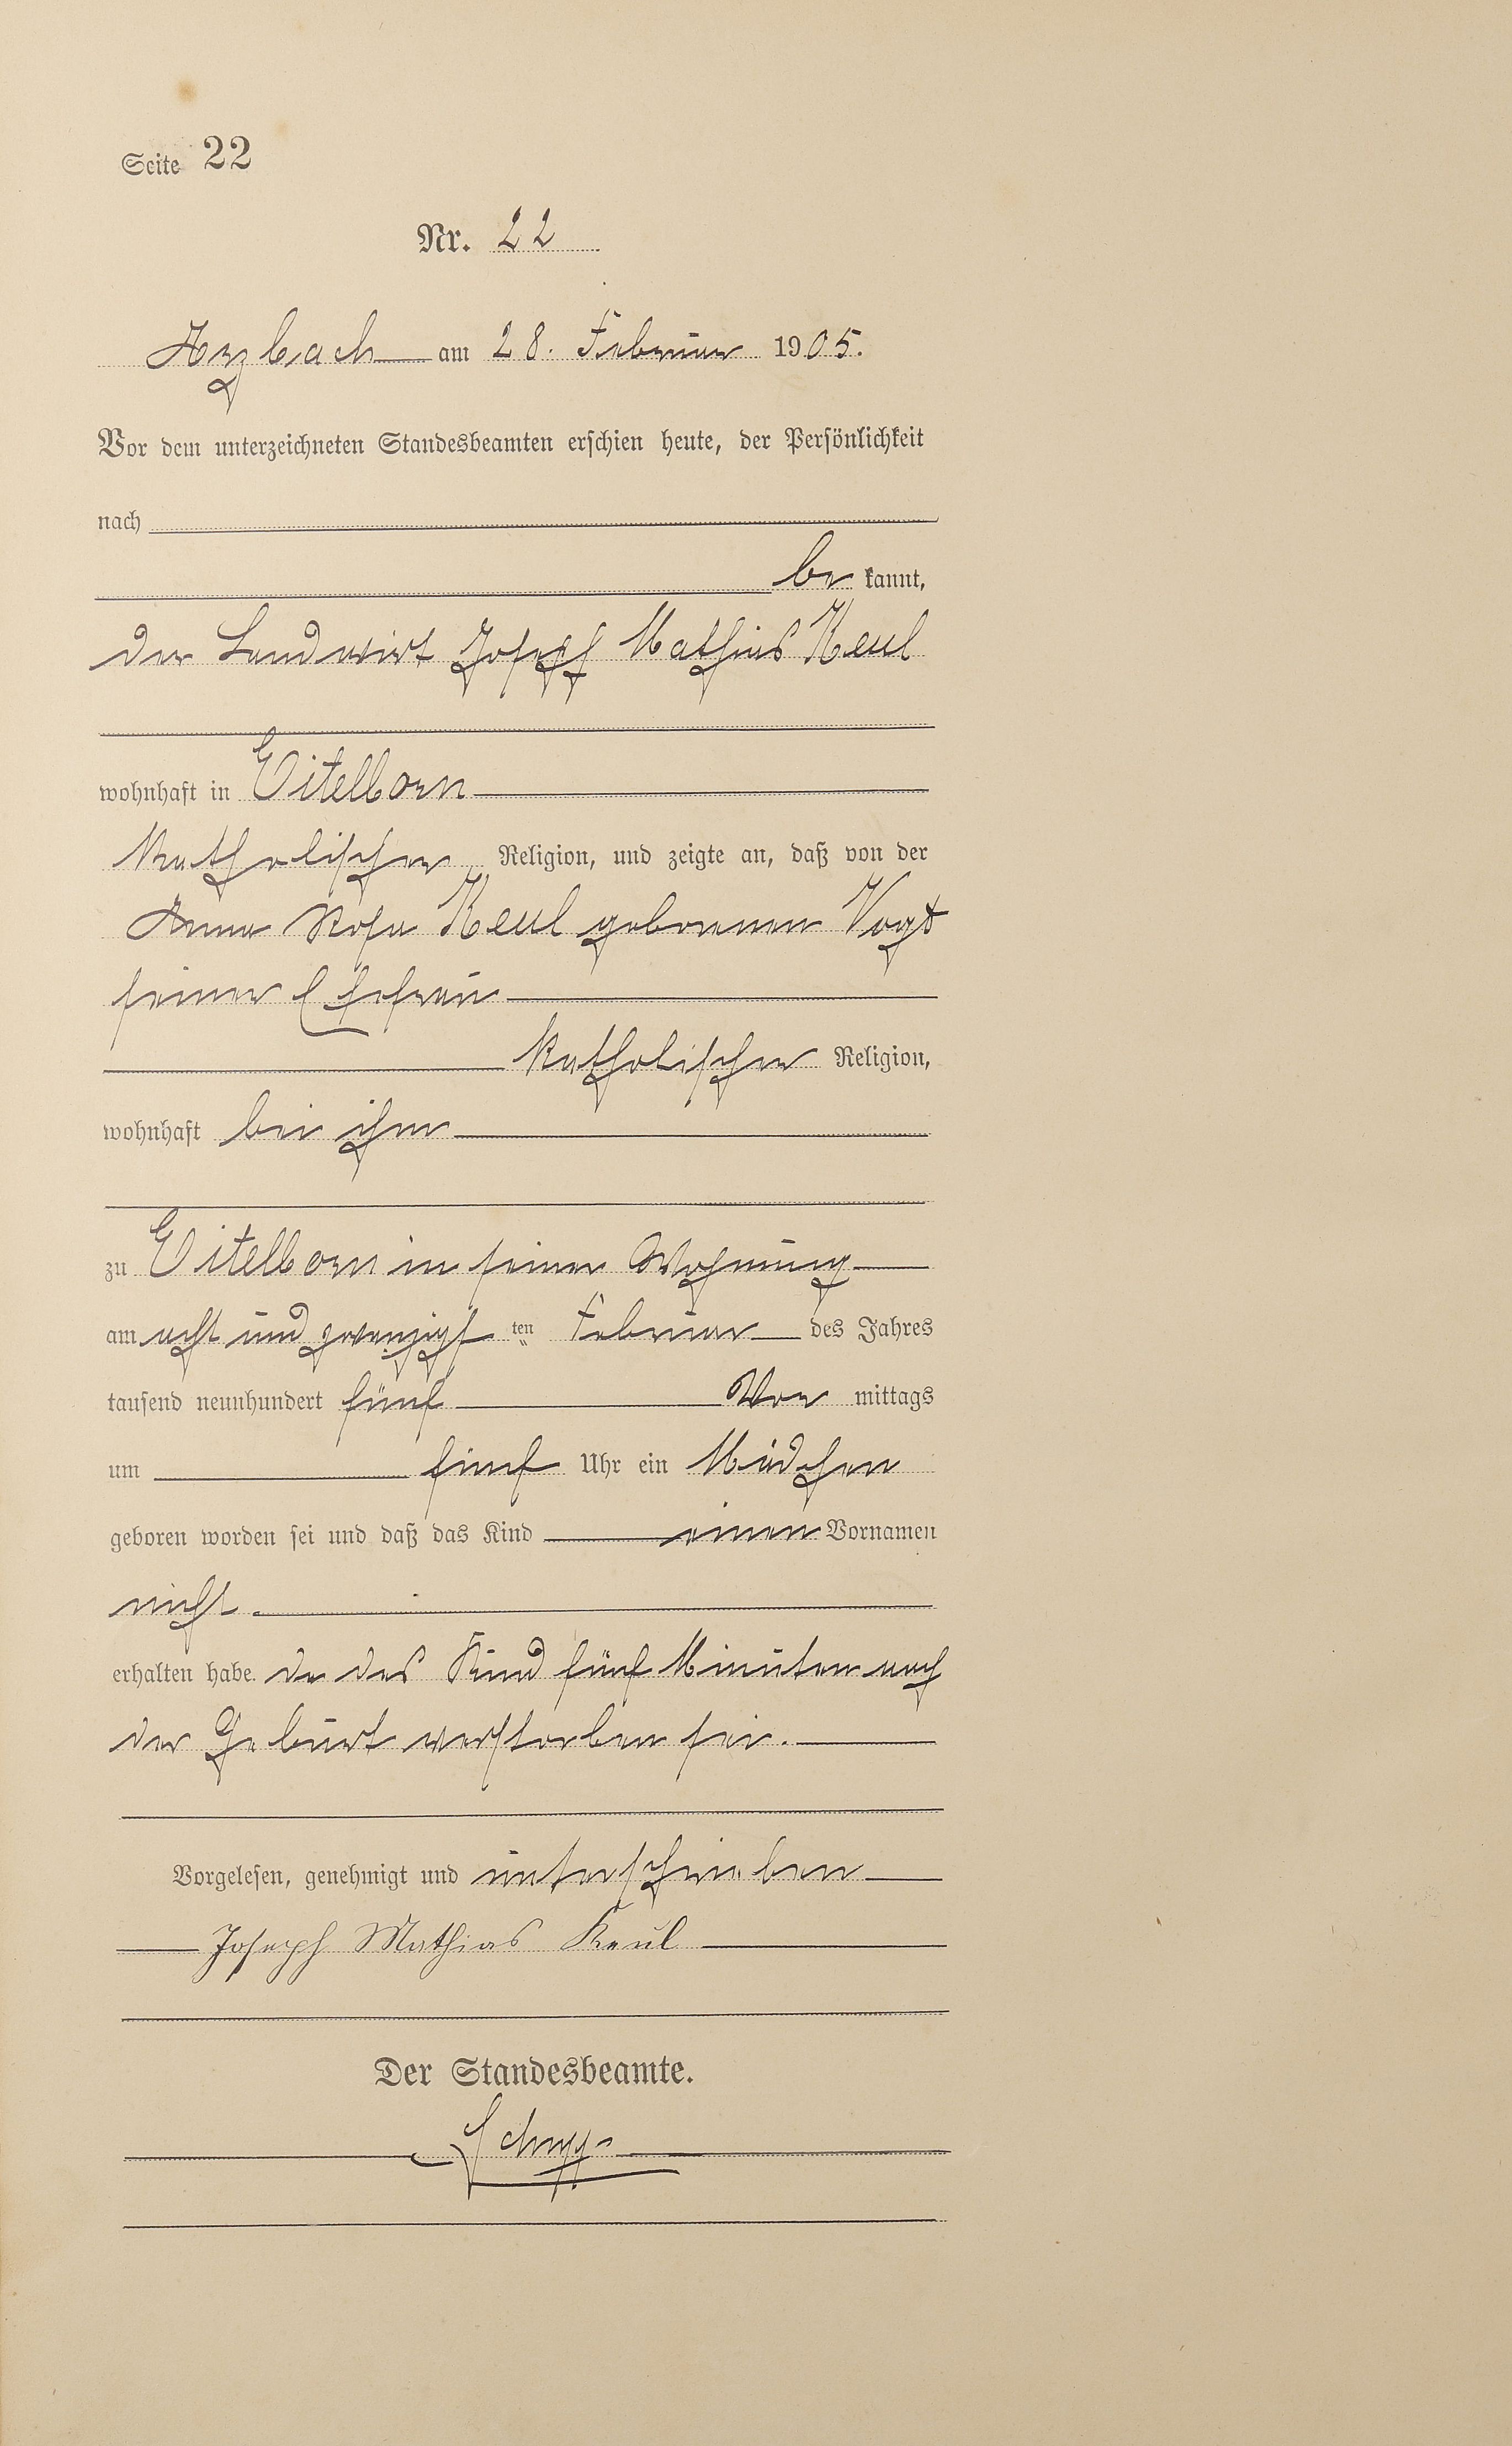 Seite 22
Nr. 22
Arzbach am 28. Februar 1905.
Vor dem unterzeichneten Standesbeamten erschien heute, der Persönlichkeit
nach
be kannt,
der Landwirt Josepf Mathias Keul
wohnhaft in Eitelborn
katholischer Religion, und zeigte an, daß von der
Anna Rosa Keul geborenen Vogt
seiner Ehefrau
katholischer Religion,
wohnhaft bei ihm
zu Eitelborn in seiner Wohnung
am acht und zwanzigsten Februar des Jahres
tausend neunhundert fünf Vor mittags
um fünf Uhr ein Mädchen
geboren worden sei und daß das Kind einen Vornamen
nicht.
erhalten habe da das Kind fünf Minuten nach
der Geburt verstorben sei.
Vorgelesen, genehmigt und unterschrieben
Joseph Mathias Keul
Der Standesbeamte.